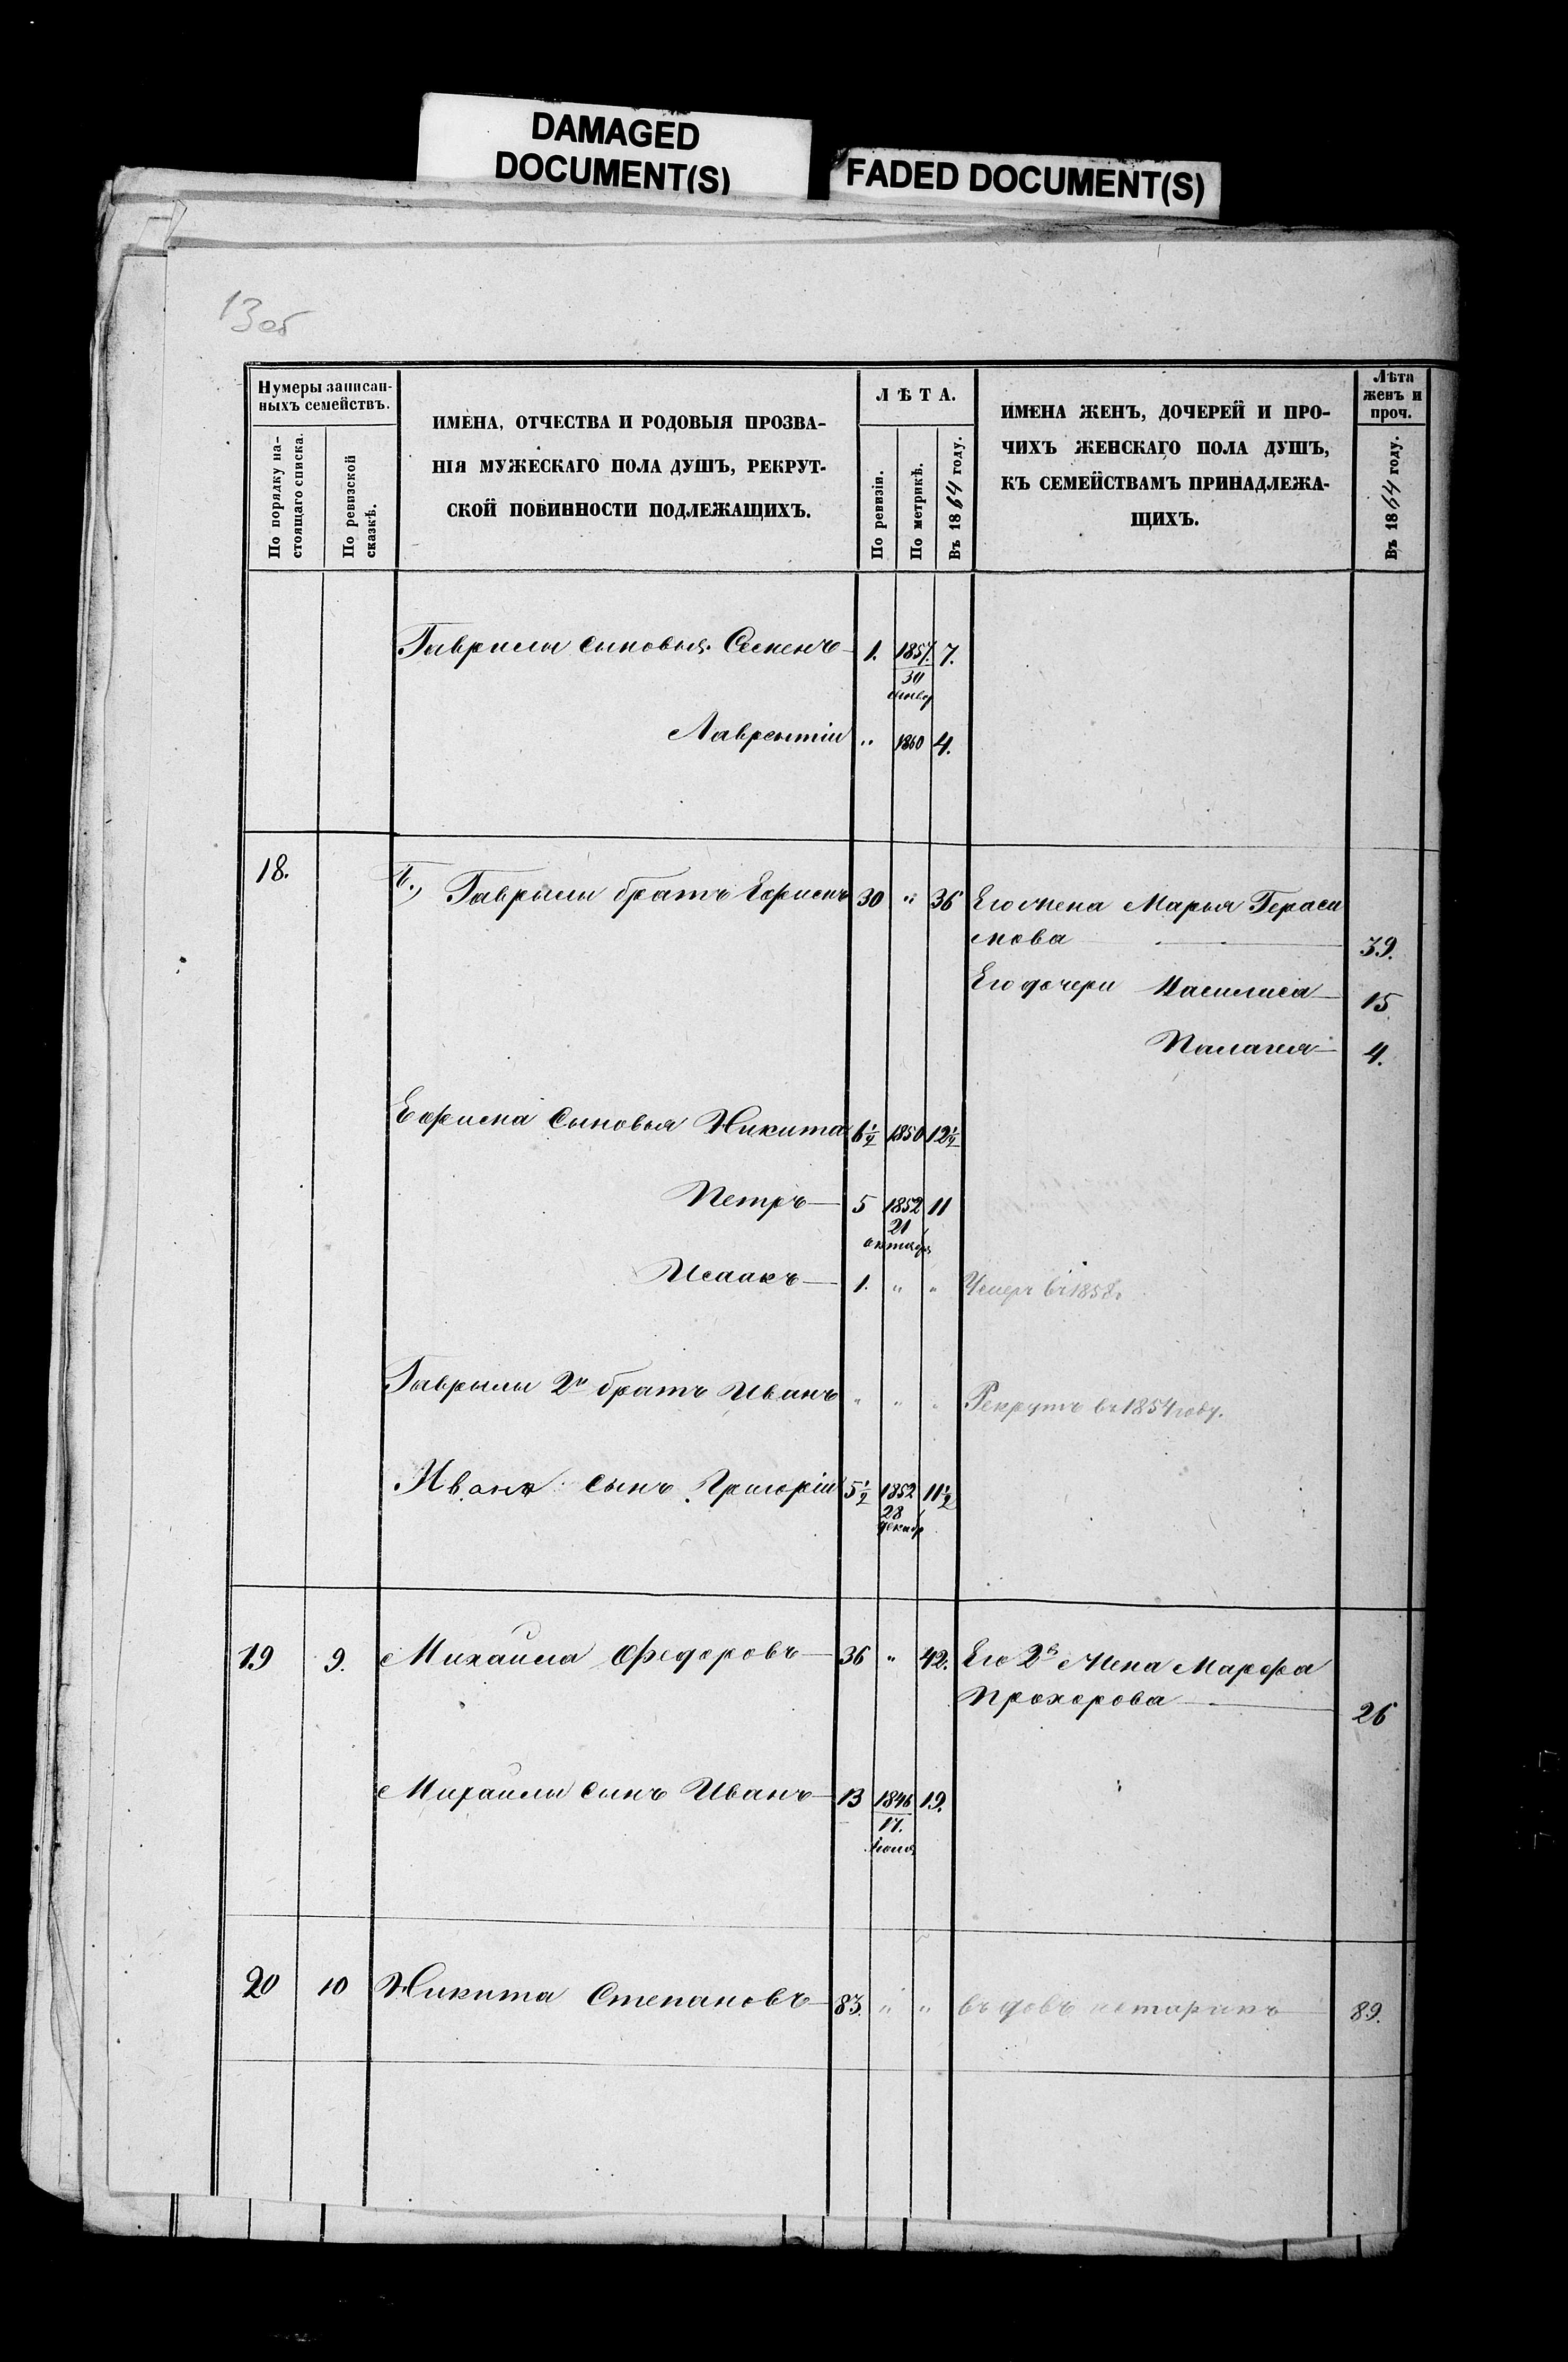 DAMAGED
DOCUMENT(S)
FADED DOCUMENT(S)
13 об
Нумеры записан-
ныхъ семействъ.
По порядку на-
стоящаго списка.
По ревизской
сказкѣ.
ИМЕНА, ОТЧЕСТВА И РОДОВЫЯ ПРОЗВА-
НІЯ МУЖЕСКАГО ПОЛА ДУШЪ, РЕКРУТ-
СКОЙ ПОВИННОСТИ ПОДЛЕЖАЩИХЪ.
ЛѢТА.
По ревизіи.
По метрикѣ.
Въ 1864 году.
ИМЕНА ЖЕНЪ, ДОЧЕРЕЙ И ПРО-
ЧИХЪ ЖЕНСКАГО ПОЛА ДУШЪ,
КЪ СЕМЕЙСТВАМЪ ПРИНАДЛЕЖА-
ЩИХЪ.
Лѣта
женъ и
проч.
Въ 1864 году.
Гаврилы сыновья 1. 1857. 7.
30
Лаврентій " 1860 4.
18. Гаврилы братъ Ефимъ 30 " 36 Его жена Марья Гераси
мова 39.
Его дочери Василиса 15
Палагея 4.
Ефима сыновья Никита 6½ 1850 12½
Петръ 5 1852 11
21
октабр
Исаакъ 1. " " Умеръ въ 1858.
Гаврилы 2й братъ Иванъ " " " Рекрутъ въ 1854 году.
Ивана сынъ Григорій 5½ 1852 11½
28
декабр
19 9. Михаила Федоровъ 36 " 42. Его 2я жена Марфа
Прохорова 26
Михаилы сынъ Иванъ 13 1846 19.
17.
20 10 Никита Степановъ 83. " " 89.